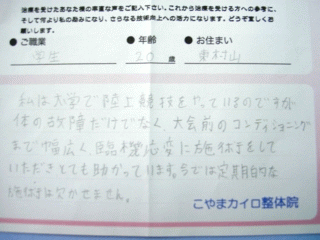 治療を受けたあなた様の率直な声をご記入下さい。これから治療を受ける方への参考に、
そして何より私の励みになり、さらなる技術向上への活力になります。どうぞ宜しくお
願いします。
●ご職業 ●年齢 ●お住まい
学生 20 歳 東村山
私は大学で陸上競技をやっているのですが
体の故障だけでなく、大会前のコンディショニング
まで幅広く臨機応変に施術をして
いただきとても助かっています。今では定期的な
施術は欠かせません。
こやまカイロ整体院